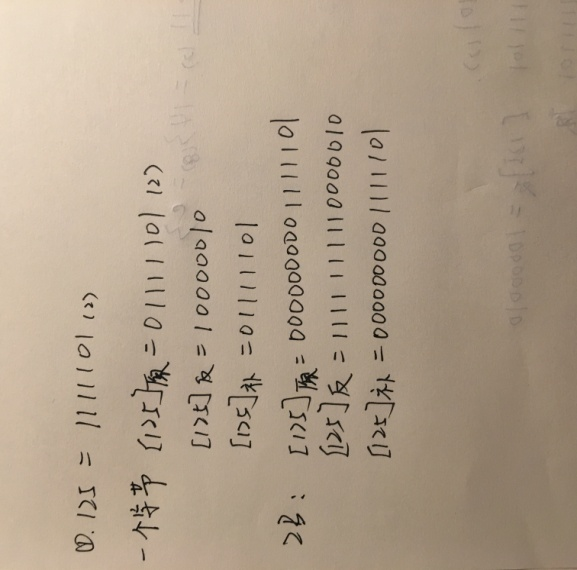 ①. 125 = 1111101 (2)
一个字节 [125]原 = 01111101 (2)
[125]反 = 10000010
[125]补 = 01111101
2B: [125]原 = 0000000001111101
[125]反 = 1111111110000010
[125]补 = 0000000001111101